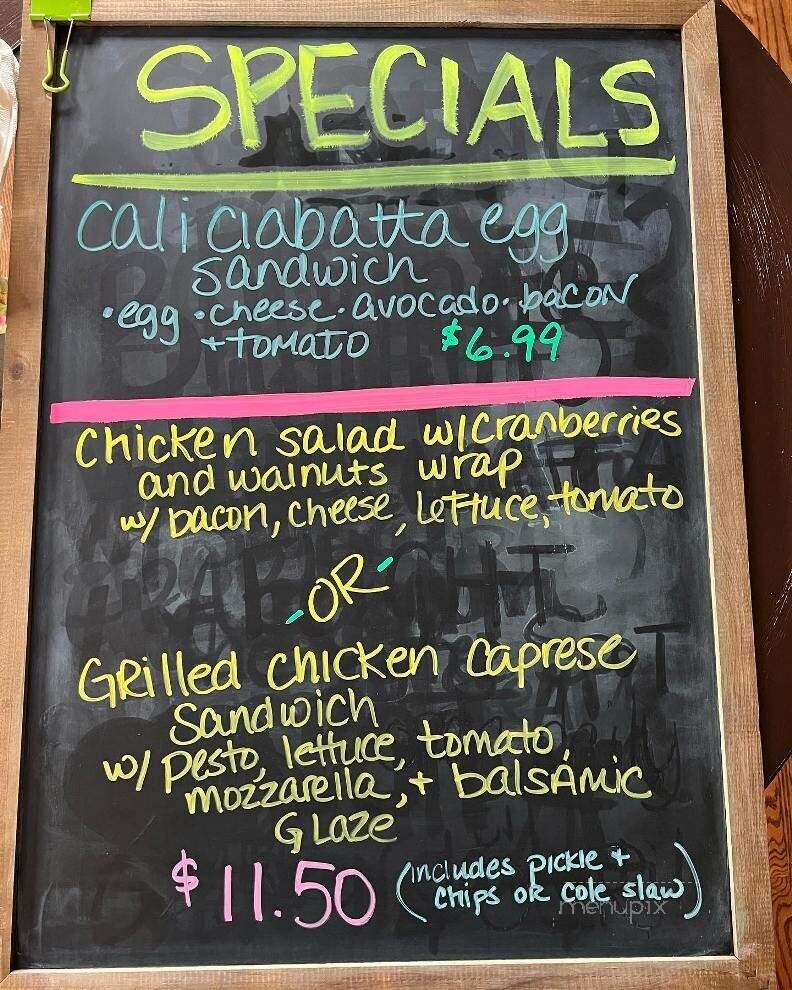 SPECIALS
Cali ciabatta egg
sandwich
·egg ·cheese· avocado· bacon
+ tomato $6.99
Chicken salad w/cranberries
and walnuts wrap
w/ bacon, cheese, lettuce, tomato
-OR-
Grilled chicken caprese
sandwich
w/ pesto, lettuce, tomato,
mozzarella, + balsamic
Glaze
$11.50 (includes pickle +
chips or cole slaw)
menupix